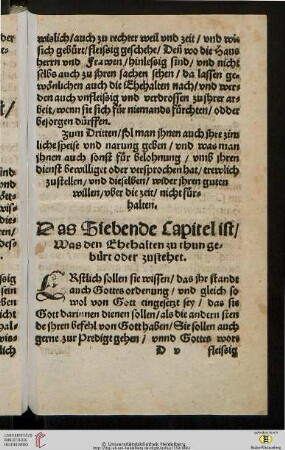 wislich/auch zu rechter weil vnd zeit/ vnd wie
sich gebürt/fleissig geschehe/ Deñ wo die Haus
herrn vnd Frawen/hinlessig sind/ vnd nicht
selbs auch zu jhren sachen sehen/ da lassen ge-
wönlichen auch die Ehehalten nach/ vnd wer-
den auch vnfleissig vnd verdrossen zu jhrer ar-
beit/wenn sie sich für niemands fürchten/ odder
besorgen dürffen.
Zum Dritten/sol man jhnen auch jhre zim
liche speise vnd narung geben / vnd was man
jhnen auch sonst für belohnung / vmb jhren
dienst bewilligt oder versprochen hat/ trewlich
zustellen/ vnd dieselben/ wider jhren guten
willen/ vber die zeit/ nicht für-
halten.
Das Siebende Capitel ist/
Was den Ehehalten zu thun ge-
bürt oder zustehet.
ERstlich sollen sie wissen/ das jhr standt
auch Gottes ordenung / vnd gleich so
wol von Gott eingesetzt sey / das sie
Gott darinnen dienen sollen/ als die andern sten
de jhren befehl von Gott haben/ Sie sollen auch
gerne zur Predigt gehen / vnnd Gottes wort
D v fleissig
© Universitätsbibliothek Heidelberg